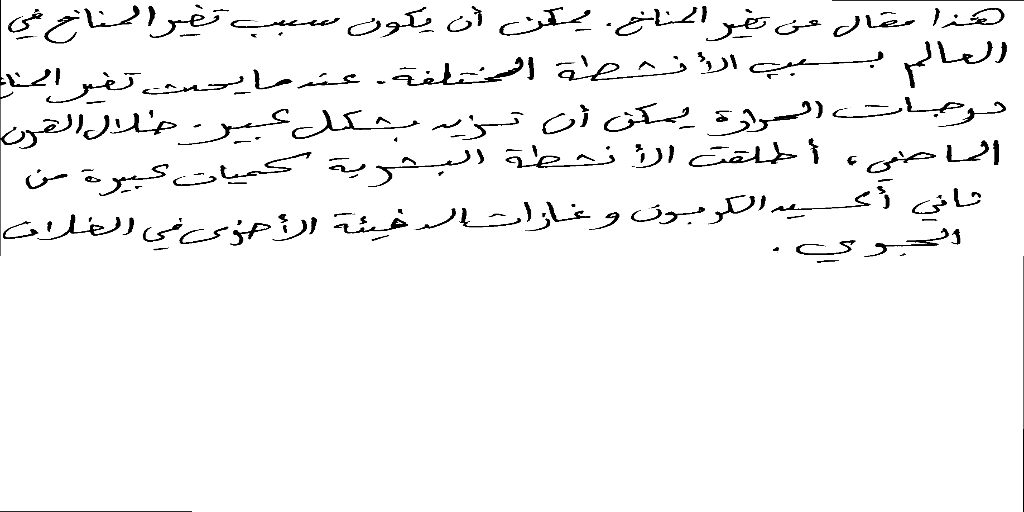 هذا مقال عن تغير المناخ. يمكن أن يكون سبب تغير المناخ في
العالم بسبب الأنشطة المختلفة. عندما يحدث تغير المناخ
درجات الحرارة يمكن أن تزيد بشكل كبير. خلال القرن
الماضي، أطلقت الأنشطة البشرية كميات كبيرة من
ثاني أكسيد الكربون وغازات الدفيئة الأخرى في الغلاف
الجوي.